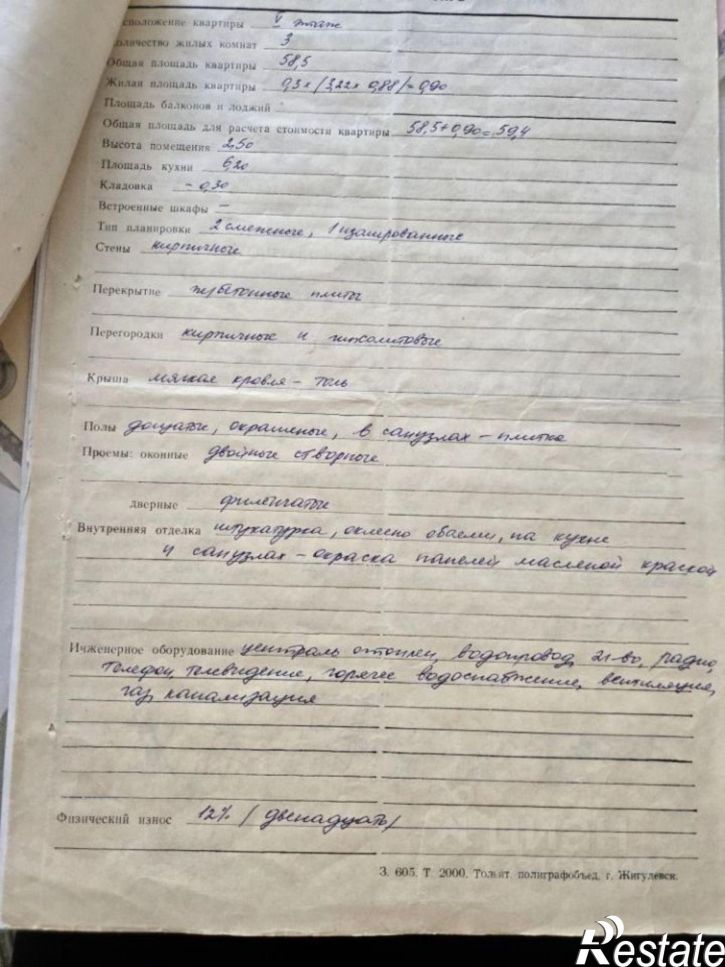 сположение квартиры V этаж
оличество жилых комнат 3
Общая площадь квартиры 58,5
Жилая площадь квартиры 0,3 х (3,22 х 0,88) = 0,90
Площадь балконов и лоджий
Общая площадь для расчета стоимости квартиры 58,5+0,90=59,4
Высота помещения 2,50
Площадь кухни 6,20
Кладовка - 0,30
Встроенные шкафы -
Тип планировки 2 смежные, 1 изолированные
Стены кирпичные
Перекрытие ж/бетонные плиты
Перегородки кирпичные и гипсолитовые
Крыша мягкая кровля - толь
Полы дощатые, окрашеные, в санузлах - плитка
Проемы: оконные двойные створные
дверные филенчатые
Внутренняя отделка штукатурка, оклеено обоями, на кухне
и санузлах - окраска панелей масленой краской
Инженерное оборудование централь отоплен, водопровод, эл-во, радио,
телефон, телевидение, горячее водоснабжение, вентиляция,
газ, канализация
Физический износ 12% (двенадцать)
З. 605. Т. 2000. Тольят. полиграфобъед. г. Жигулевск.
Restate